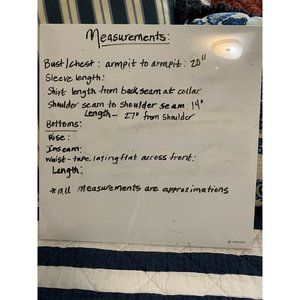 Measurements:
Bust/chest: armpit to armpit: 20"
Sleeve length:
Shirt length from back seam at collar
Shoulder seam to shoulder seam 14"
Length - 27" from shoulder
Bottoms:
Rise:
Inseam:
Waist - tape laying flat across front:
Length:
*all measurements are approximations